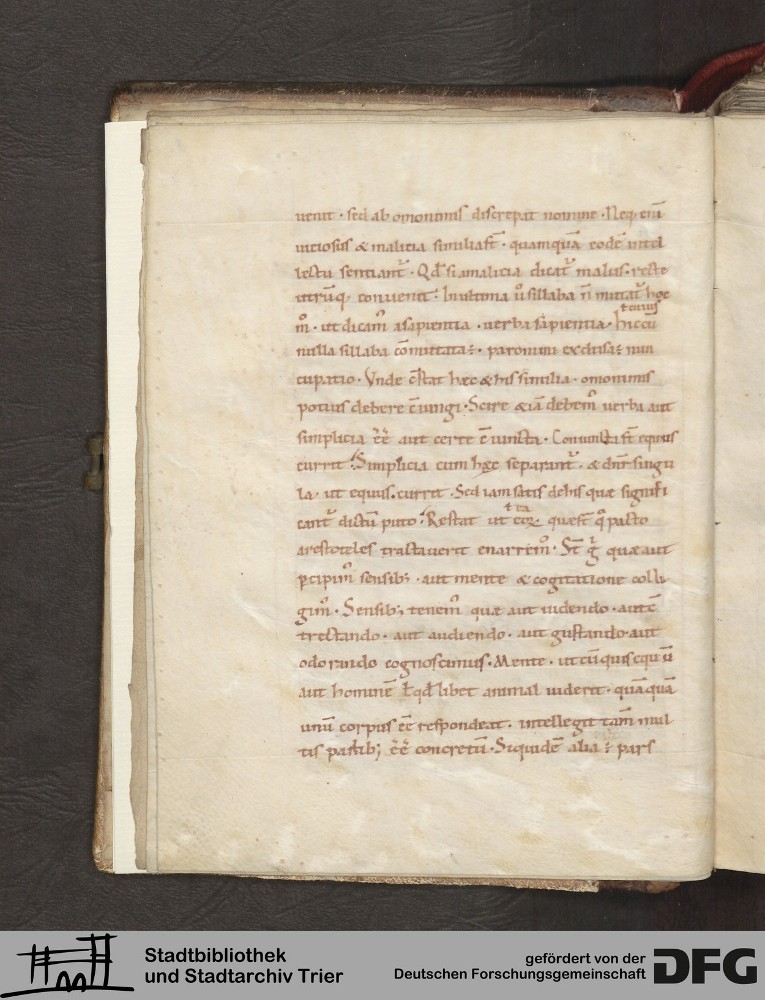 uenit · sed ab omonimis discrepat nomine · Neq; eni
uiciosus & malicia similia st̄ · quamquā eodē intel
lectu sentiant᷑ · Qđ si a malicia dicat᷑ malus · recte
utrūq; conuenit · In ultima ū sillaba n̄ mutat᷑ hoc
ł cuius
m̊ · ut dicam᷒ a sapientia · uerba sapientia · hic cū
nulla sillaba cōmutata ÷ · paronimi exclusa ÷ nun
cupatio · Vnde c̄stat hæc & his similia · omonimis
potius debere c̄iungi · Scire & iā debem᷒ uerba aut
simplicia ēē aut certe c̄iuncta · Coniuncta st̄ equus
currit · Simplicia cum hæc separant᷑ · & dn̄r singu
la · ut equus · currit · Sed iam satis de his quæ signifi
ł ea
cant᷑ dictū puto · Restat ut eoꝝ quæ st̄ q̊ pacto
arestoteles tractauerit enarrem᷒ · St̄ g̊ quæ aut
p̄cipim᷒ sensib; · aut mente & cogitatione colli
gim᷒ · Sensib; tenem᷒ quæ aut uidendo · aut c̄
trectando · aut audiendo · aut gustando · aut
odorando cognoscimus · Mente · ut cū quis equū
aut hominē ł qđlibet animal uiderit · quāquā
unū corpus ēē respondeat · intellegit tam̄ mul
tis partib; ēē concretū · Siquidē alia ÷ pars
Stadtbibliothek
und Stadtarchiv Trier
gefördert von der
Deutschen Forschungsgemeinschaft
DFG